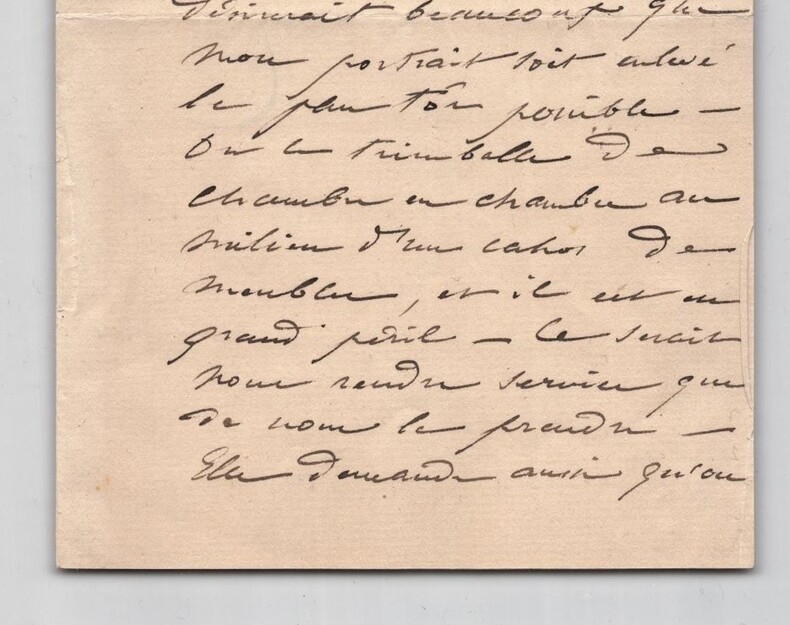 désirerait beaucoup que
mon portrait soit enlevé
le plus tôt possible —
On le trimballe de
chambre en chambre au
milieu d'un cahos de
meubles, et il est en
grand péril — Ce serait
nous rendre service que
de nous le prendre —
Elle demande aussi qu'on